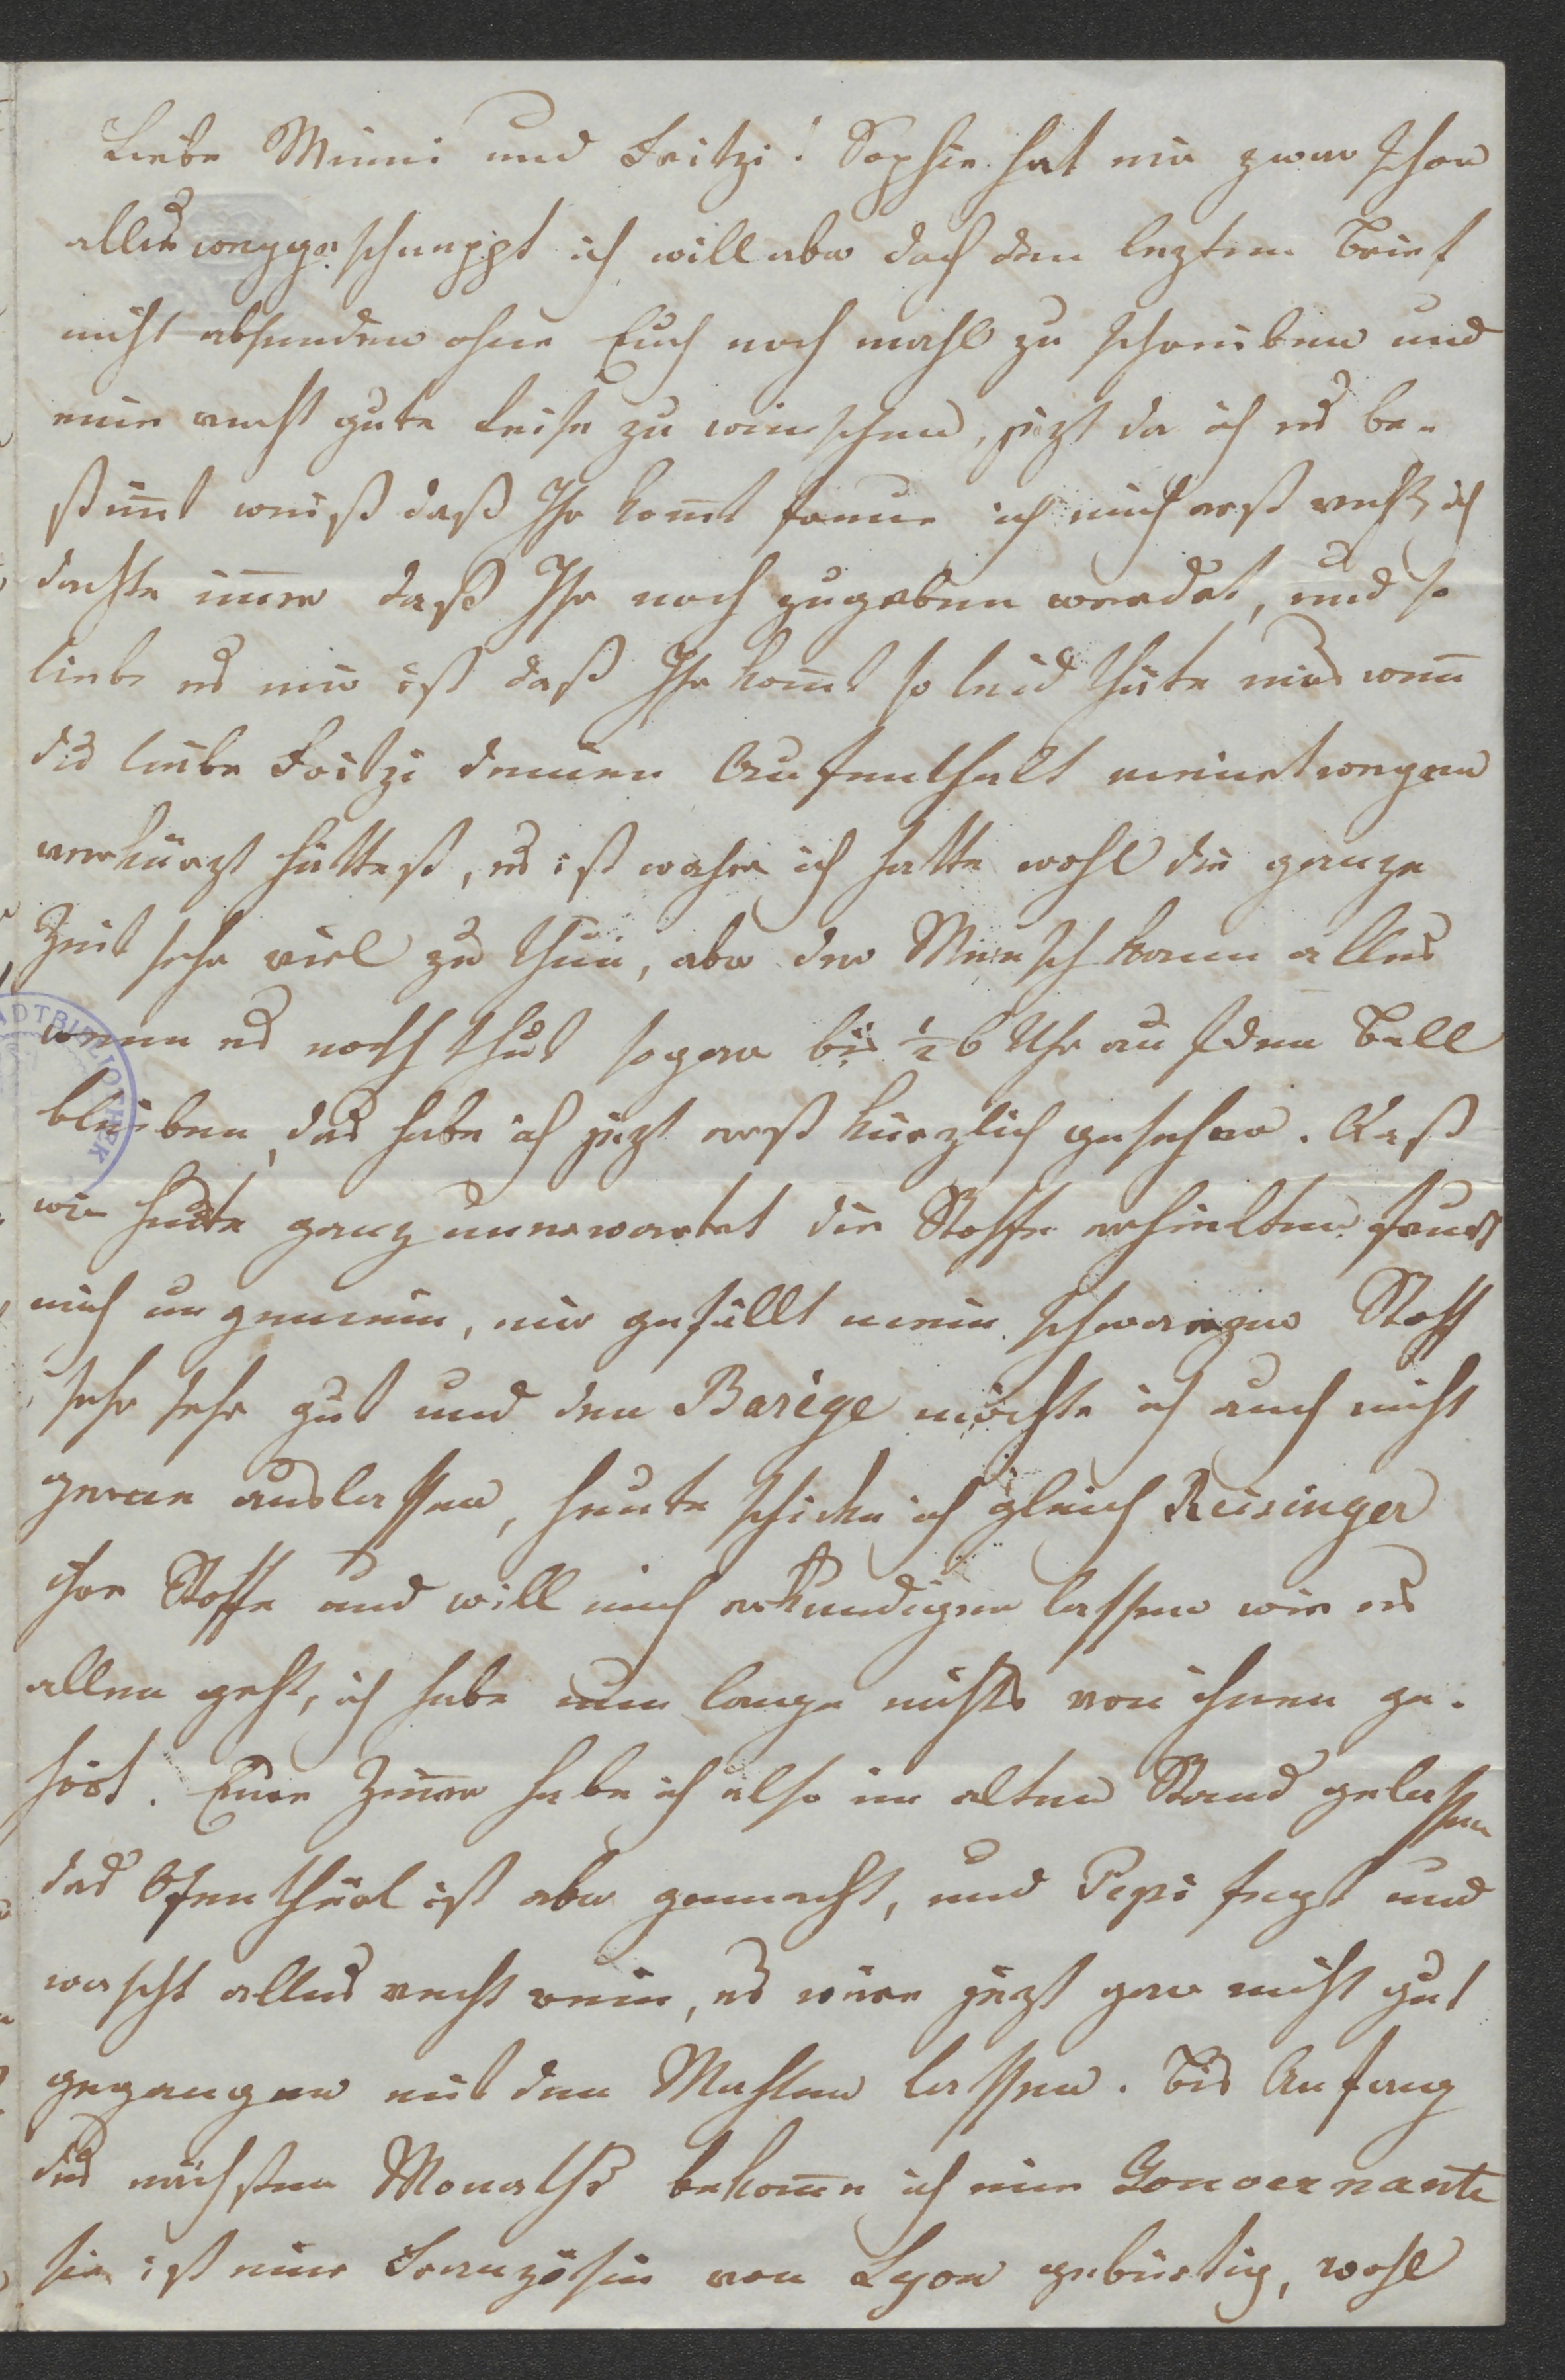 Liebe Minni und Fritzi! Sophie hat mir zwar schon
alles weggeschnappt ich will aber doch den lezten Brief
nicht absenden ohne Euch noch mahl zu schreiben und
eine recht gute Reise zu winschen, jezt da ich es be-
stim̅t weiß daß Ihr kom̅t freue ich mich erst recht, ich
dachte im̅er daß Ihr noch zugeben werdet, und so
liebe es mir ist daß Ihr kom̅t so leid thäte mirs wen̅
du liebe Fritzi deinen Aufenthalt meinetwegen
verkürzt hättest, es ist wahr ich hatte wohl die ganze
Zeit sehr viel zu thun, aber der Mensch kann alles
wenn es noth thut sogar bis ½6 Uhr auf dem Ball
bleiben, das habe ich jezt erst kürzlich gesehen. Daß
wir heute ganz unerwartet die Stoffe erhielten freut
mich ungemein, mir gefällt mein schwarzer Stoff
sehr sehr gut und den Barège möchte ich auch nicht
gerne auslassen, heute schicke ich gleich Reisinger
ihre Stoffe und will mich erkundigen lassen wie es
allen geht, ich habe nun lange nichts von ihnen ge-
hört. Eure Zim̅er habe ich also im alten Stand gelassen
das Ofenthürl ist aber gemacht, und Pepi fegt und
wascht alles recht rein, es wäre jezt gar nicht gut
gegangen mit dem Mahlen lassen. Bis Anfang
des nächsten Monaths bekom̅e ich eine Gouvernante
sie ist eine Französin von Lyon gebürtig, wohl